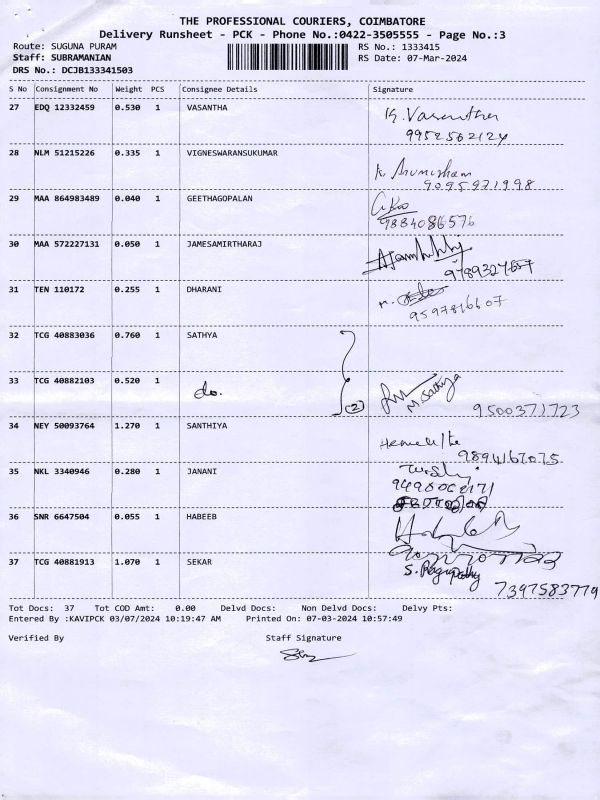 THE PROFESSIONAL COURIERS, COIMBATORE
Delivery Runsheet - PCK - Phone No.:0422-3505555 - Page No.:3
Route: SUGUNA PURAM RS No.: 1333415
Staff: SUBRAMANIAN RS Date: 07-Mar-2024
DRS No.: DCJB133341503
S No Consignment No Weight PCS Consignee Details Signature
27 EDQ 12332459 0.530 1 VASANTHA K. Vasantha
9952562124
28 NLM 51215226 0.335 1 VIGNESWARANSUKUMAR
K.
9095971998
29 MAA 864983489 0.040 1 GEETHAGOPALAN
9884086576
30 MAA 572227131 0.050 1 JAMESAMIRTHARAJ
9789327657
31 TEN 110172 0.255 1 DHARANI
9597816607
32 TCG 40883036 0.760 1 SATHYA
33 TCG 40882103 0.520 1 do. (2) M. Sathiya
9500371723
34 NEY 50093764 1.270 1 SANTHIYA
9894167075
35 NKL 3340946 0.280 1 JANANI
36 SNR 6647504 0.055 1 HABEEB
37 TCG 40881913 1.070 1 SEKAR S. Ragupathy
7397583779
Tot Docs: 37 Tot COD Amt: 0.00 Delvd Docs: Non Delvd Docs: Delvy Pts:
Entered By :KAVIPCK 03/07/2024 10:19:47 AM Printed On: 07-03-2024 10:57:49
Verified By Staff Signature